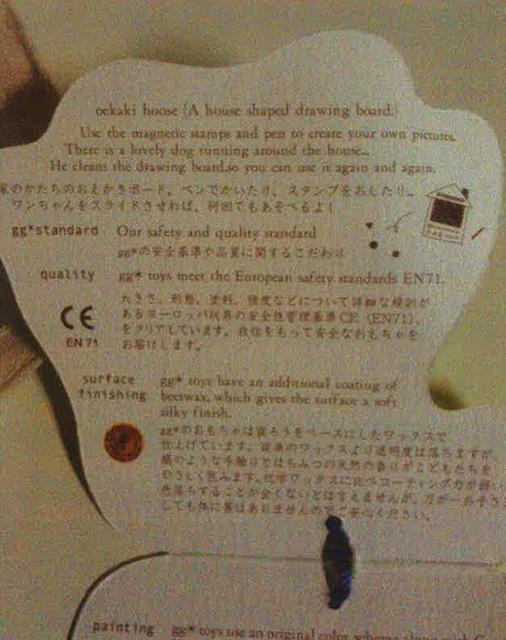 oekaki house (A house shaped drawing board.)
Use the magnetic stamps and pen to create your own pictures.
There is a lovely dog running around the house...
He cleans the drawing board,so you can use it again and again.
家のかたちのおえかきボード。ペンでかいたり、スタンプをおしたり。
ワンちゃんをスライドさせれば、何回でもあそべるよ！
gg*standard Our safety and quality standard
gg*の安全基準や品質に関するこだわり
quality gg* toys meet the European safety standards EN71.
大きさ、形態、塗料、強度などについて詳細な規則が
あるヨーロッパ玩具の安全性管理基準CE (EN71)、
をクリアしています。自信をもって安全なおもちゃを
お届けします。
CE
EN 71
surface finishing
gg* toys have an additional coating of
beeswax, which gives the surface a soft
silky finish.
gg*のおもちゃは蜜ろうをベースにしたワックスで
仕上げています。従来のワックスより透明度は落ちますが、
絹のような手触りとはちみつの天然の香りがこどもたちを
やさしく包みます。化学ワックスに比べコーティング力が弱い
色落ちすることが全くないとは言えませんが、万が一お子さ
しても体に害はありませんのでご安心ください。
painting gg* toys use an original color